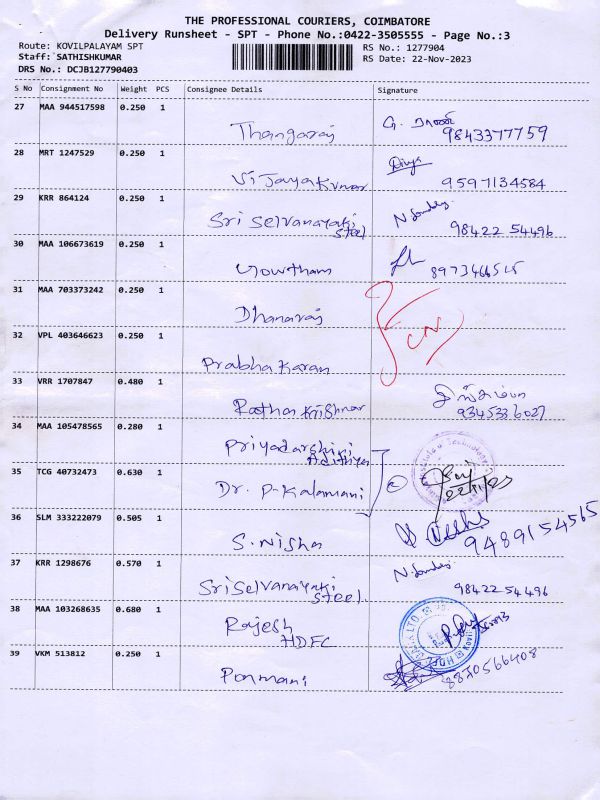 THE PROFESSIONAL COURIERS, COIMBATORE
Delivery Runsheet - SPT - Phone No.:0422-3505555 - Page No.:3
Route: KOVILPALAYAM SPT RS No.: 1277904
Staff: SATHISHKUMAR RS Date: 22-Nov-2023
DRS No.: DCJB127790403
S No Consignment No Weight PCS Consignee Details Signature
27 MAA 944517598 0.250 1
Thangaraj 9843377759
28 MRT 1247529 0.250 1
Vijayakumar Divya 9597134584
29 KRR 864124 0.250 1
Sri Selvanayaki
Steel 98422 54496
30 MAA 106673619 0.250 1
Gowtham 8973466515
31 MAA 703373242 0.250 1
Dhanaraj
32 VPL 403646623 0.250 1
Prabhakaran
33 VRR 1707847 0.480 1
Rathakrishnan 9345336027
34 MAA 105478565 0.280 1
Priyadarshini
Adithya
35 TCG 40732473 0.630 1
Dr. P. Kalamani 22/11/23
36 SLM 333222079 0.505 1
S. Nisha 9489154565
37 KRR 1298676 0.570 1
Sri Selvanayaki
Steel 98422 54496
38 MAA 103268635 0.680 1
Rajesh
HDFC
39 VKM 513812 0.250 1
Ponmani 8870566408